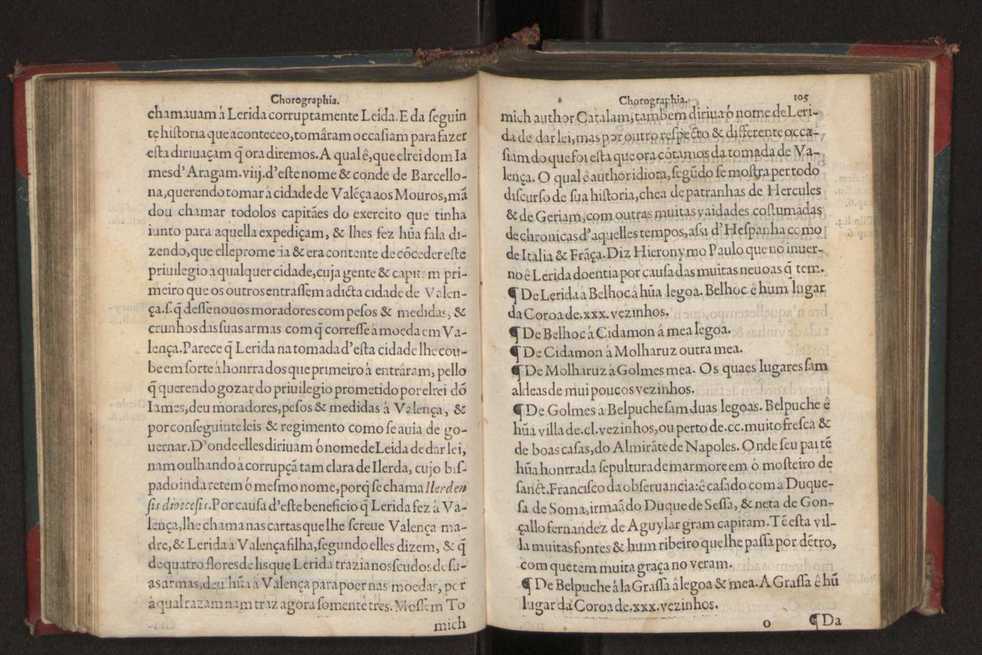 Chorographia.
chamauam á Lerida corruptamente Leida. E da seguin
te historia que aconteceo, tomáram occasiam para fazer
esta diriuaçam q̃ ora diremos. A qual ê, que elrei dom Ia
mes d'Aragam.viij.d'este nome & conde de Barcello-
na, querendo tomar à cidade de Valẽça aos Mouros, mã
dou chamar todolos capitães do exercito que tinha
iunto para aquella expediçam, & lhes fez hũa fala di-
zendo, que elle prometia & era contente de cõceder este
priuilegio a qualquer cidade, cuja gente & capitam pri-
meiro que os outros entrassem a dicta cidade de Valen-
ça.s.q̃ desse nouos moradores com pesos & medidas, &
crunhos das suas armas com q̃ corresse á moeda em Va-
lença. Parece q̃ Lerida na tomada d'esta cidade lhe cou-
be em sorte á honrra dos que primeiro à entráram, pello
q̃ querendo gozar do priuilegio prometido por elrei dõ
Iames, deu moradores, pesos & medidas à Valença, &
por conseguinte leis & regimento como se auia de go-
uernar. D'onde elles diriuam ó nome de Leida de dar lei,
nam oulhando à corrupçã tam clara de Ilerda, cujo bis-
pado inda retem ó mesmo nome, porq̃ se chama Ilerden
sis diœcesis. Por causa d'este beneficio q̃ Lerida fez á Va-
lença, lhe chama nas cartas que lhe screue Valença ma-
dre, & Lerida à Valença filha, segundo elles dizem, & q̃
de quatro flores de lis que Lerida trazia nos scudos de su-
as armas, deu hũa à Valença para poer nas moedas, por
à qual razam nam traz agora somente tres. Mossem To
mich
Chorographia. 105
mich author Catalam, tambem diriua ó nome de Leri-
da de dar lei, mas por outro respecto & differente occa-
siam do que foi esta que ora cõtamos da tomada de Va-
lença. O qual ê author idiota, segũdo se mostra per todo
discurso de sua historia, chea de patranhas de Hercules
& de Geriam, com outras muitas vaidades costumadas
de chronicas d'aquelles tempos, assi d'Hespanha como
de Italia & Frãça. Diz Hieronymo Paulo que no inuer-
no ê Lerida doentia por causa das muitas neuoas q̃ tem.
¶ De Lerida à Belhoc à hũa legoa. Belhoc ê hum lugar
da Coroa de.xxx.vezinhos.
¶ De Belhoc à Cidamon á mea legoa.
¶ De Cidamon à Molharuz outra mea.
¶ De Molharuz à Golmes mea. Os quaes lugares sam
aldeas de mui poucos vezinhos.
¶ De Golmes à Belpuche sam duas legoas. Belpuche ê
hũa villa de.cl.vezinhos, ou perto de.cc.muito fresca &
de boas casas, do Almirãte de Napoles. Onde seu pai tẽ
hũa honrrada sepultura de marmore em ó mosteiro de
sanct. Francisco da obseruancia: ê casado com à Duque-
sa de Soma, irmaã do Duque de Sessa, & neta de Gon-
çallo fernandez de Aguylar gram capitam. Tẽ esta vil-
la muitas fontes & hum ribeiro que lhe passa por dẽtro,
com que tem muita graça no veram.
¶ De Belpuche á la Grassa á legoa & mea. A Grassa ê hũ
lugar da Coroa de.xxx.vezinhos.
o ¶ Da